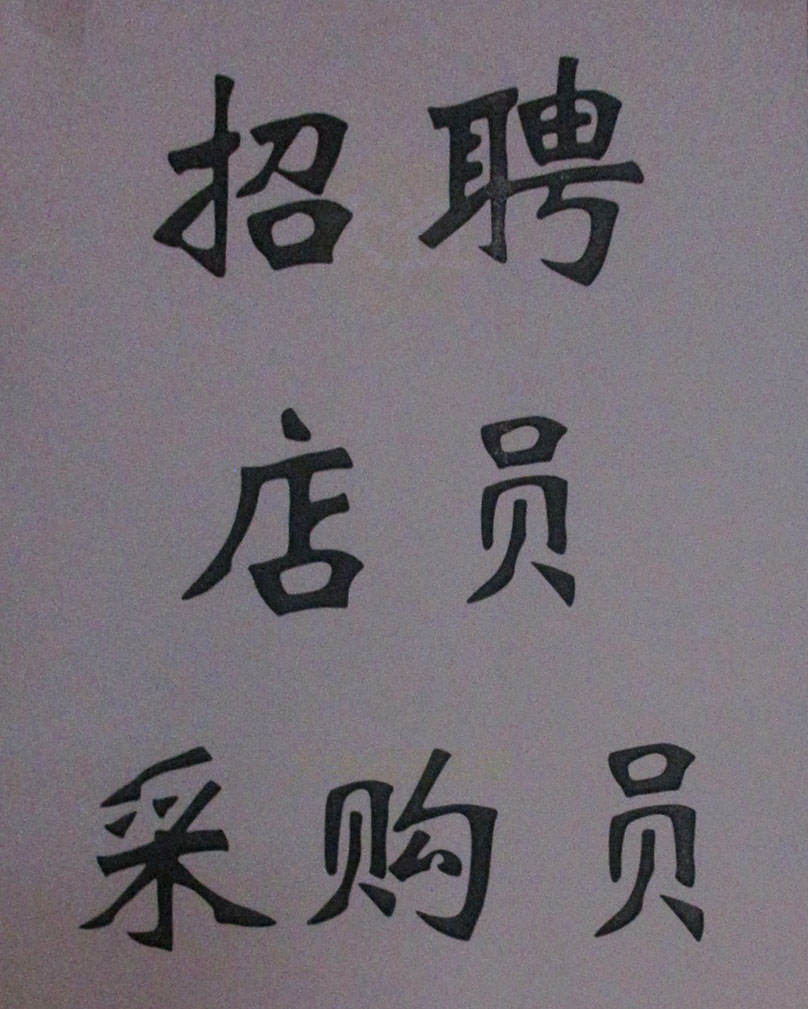 招聘
店员
采购员